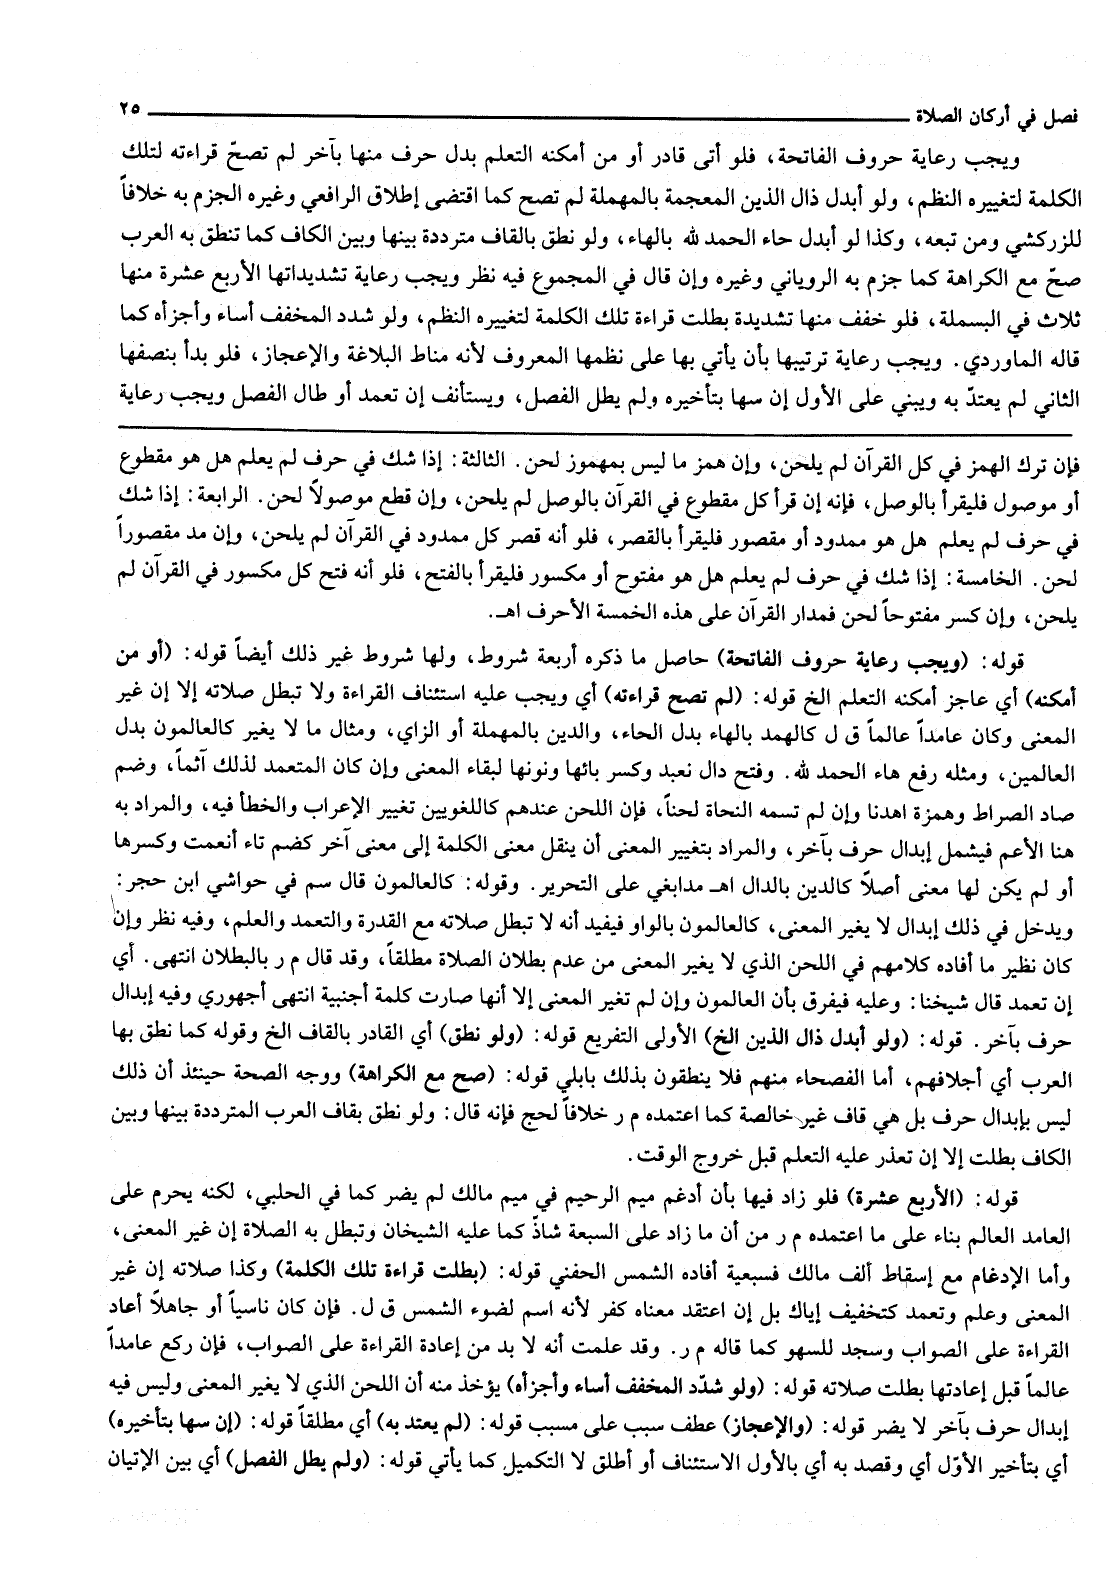 فصل في أركان الصلاة ٢٥
ويجب رعاية حروف الفاتحة، فلو أتى قادر أو من أمكنه التعلم بدل حرف منها بآخر لم تصحّ قراءته لتلك
الكلمة لتغييره النظم، ولو أبدل ذال الذين المعجمة بالمهملة لم تصح كما اقتضى إطلاق الرافعي وغيره الجزم به خلافاً
للزركشي ومن تبعه، وكذا لو أبدل حاء الحمد لله بالهاء، ولو نطق بالقاف مترددة بينها وبين الكاف كما تنطق به العرب
صحّ مع الكراهة كما جزم به الروياني وغيره وإن قال في المجموع فيه نظر ويجب رعاية تشديداتها الأربع عشرة منها
ثلاث في البسملة، فلو خفف منها تشديدة بطلت قراءة تلك الكلمة لتغييره النظم، ولو شدد المخفف أساء وأجزأه كما
قاله الماوردي. ويجب رعاية ترتيبها بأن يأتي بها على نظمها المعروف لأنه مناط البلاغة والإعجاز، فلو بدأ بنصفها
الثاني لم يعتدّ به ويبني على الأول إن سها بتأخيره ولم يطل الفصل، ويستأنف إن تعمد أو طال الفصل ويجب رعاية
فإن ترك الهمز في كل القرآن لم يلحن، وإن همز ما ليس بمهموز لحن. الثالثة: إذا شك في حرف لم يعلم هل هو مقطوع
أو موصول فليقرأ بالوصل، فإنه إن قرأ كل مقطوع في القرآن بالوصل لم يلحن، وإن قطع موصولاً لحن. الرابعة: إذا شك
في حرف لم يعلم هل هو ممدود أو مقصور فليقرأ بالقصر، فلو أنه قصر كل ممدود في القرآن لم يلحن، وإن مد مقصوراً
لحن. الخامسة: إذا شك في حرف لم يعلم هل هو مفتوح أو مكسور فليقرأ بالفتح، فلو أنه فتح كل مكسور في القرآن لم
يلحن، وإن كسر مفتوحاً لحن فمدار القرآن على هذه الخمسة الأحرف اهـ.
قوله: (ويجب رعاية حروف الفاتحة) حاصل ما ذكره أربعة شروط، ولها شروط غير ذلك أيضاً قوله: (أو من
أمكنه) أي عاجز أمكنه التعلم الخ قوله: (لم تصح قراءته) أي ويجب عليه استئناف القراءة ولا تبطل صلاته إلا إن غير
المعنى وكان عامداً عالماً ق ل كالهمد بالهاء بدل الحاء، والدين بالمهملة أو الزاي، ومثال ما لا يغير كالعالمون بدل
العالمين، ومثله رفع هاء الحمد لله. وفتح دال نعبد وكسر بائها ونونها لبقاء المعنى وإن كان المتعمد لذلك آثماً، وضم
صاد الصراط وهمزة اهدنا وإن لم تسمه النحاة لحناً، فإن اللحن عندهم كاللغويين تغيير الإعراب والخطأ فيه، والمراد به
هنا الأعم فيشمل إبدال حرف بآخر، والمراد بتغيير المعنى أن ينقل معنى الكلمة إلى معنى آخر كضم تاء أنعمت وكسرها
أو لم يكن لها معنى أصلاً كالدين بالدال اهـ مدابغي على التحرير. وقوله: كالعالمون قال سم في حواشي ابن حجر:
ويدخل في ذلك إبدال لا يغير المعنى، كالعالمون بالواو فيفيد أنه لا تبطل صلاته مع القدرة والتعمد والعلم، وفيه نظر وإن
كان نظير ما أفاده كلامهم في اللحن الذي لا يغير المعنى من عدم بطلان الصلاة مطلقاً، وقد قال م ر بالبطلان انتهى. أي
إن تعمد قال شيخنا: وعليه فيفرق بأن العالمون وإن لم تغير المعنى إلا أنها صارت كلمة أجنبية انتهى أجهوري وفيه إبدال
حرف بآخر. قوله: (ولو أبدل ذال الذين الخ) الأولى التفريع قوله: (ولو نطق) أي القادر بالقاف الخ وقوله كما نطق بها
العرب أي أجلافهم، أما الفصحاء منهم فلا ينطقون بذلك بابلي قوله: (صح مع الكراهة) ووجه الصحة حينئذ أن ذلك
ليس بإبدال حرف بل هي قاف غير خالصة كما اعتمده م ر خلافاً لحج فإنه قال: ولو نطق بقاف العرب المترددة بينها وبين
الكاف بطلت إلا إن تعذر عليه التعلم قبل خروج الوقت.
قوله: (الأربع عشرة) فلو زاد فيها بأن أدغم ميم الرحيم في ميم مالك لم يضر كما في الحلبي، لكنه يحرم على
العامد العالم بناء على ما اعتمده م ر من أن ما زاد على السبعة شاذّ كما عليه الشيخان وتبطل به الصلاة إن غير المعنى،
وأما الإدغام مع إسقاط ألف مالك فسبعية أفاده الشمس الحفني قوله: (بطلت قراءة تلك الكلمة) وكذا صلاته إن غير
المعنى وعلم وتعمد كتخفيف إياك بل إن اعتقد معناه كفر لأنه اسم لضوء الشمس ق ل. فإن كان ناسياً أو جاهلاً أعاد
القراءة على الصواب وسجد للسهو كما قاله م ر. وقد علمت أنه لا بد من إعادة القراءة على الصواب، فإن ركع عامداً
عالماً قبل إعادتها بطلت صلاته قوله: (ولو شدّد المخفف أساء وأجزأه) يؤخذ منه أن اللحن الذي لا يغير المعنى وليس فيه
إبدال حرف بآخر لا يضر قوله: (والإعجاز) عطف سبب على مسبب قوله: (لم يعتد به) أي مطلقاً قوله: (إن سها بتأخيره)
أي بتأخير الأوّل أي وقصد به أي بالأول الاستئناف أو أطلق لا التكميل كما يأتي قوله: (ولم يطل الفصل) أي بين الإتيان